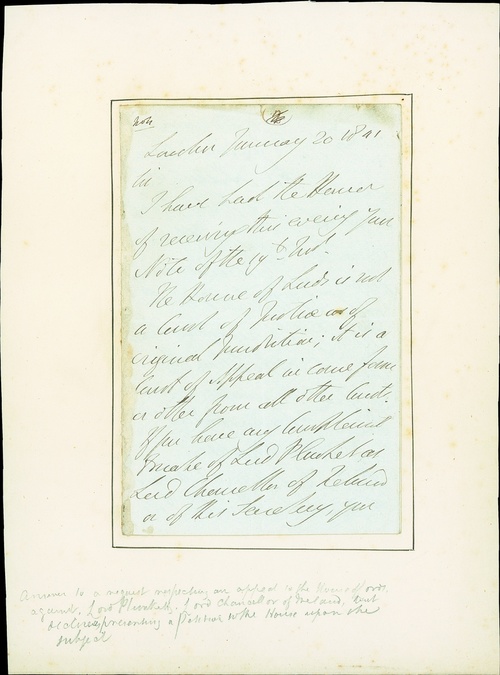 London January 20 1841
Sir
I have had the Honor
of receiving this evening your
Note of the 19th Inst.
The House of Lords is not
a Court of Justice of
original Jurisdiction; it is a
Court of Appeal in some form
or other from all other Courts.
If you have any Complaint
to make of Lord Plunket as
Lord Chancellor of Ireland
or of his Secretary, you
Answer to a request respecting an appeal to the House of Lords
against Lord Plunkett, Lord Chancellor of Ireland, but
declines presenting a Petition to the House upon the
subject